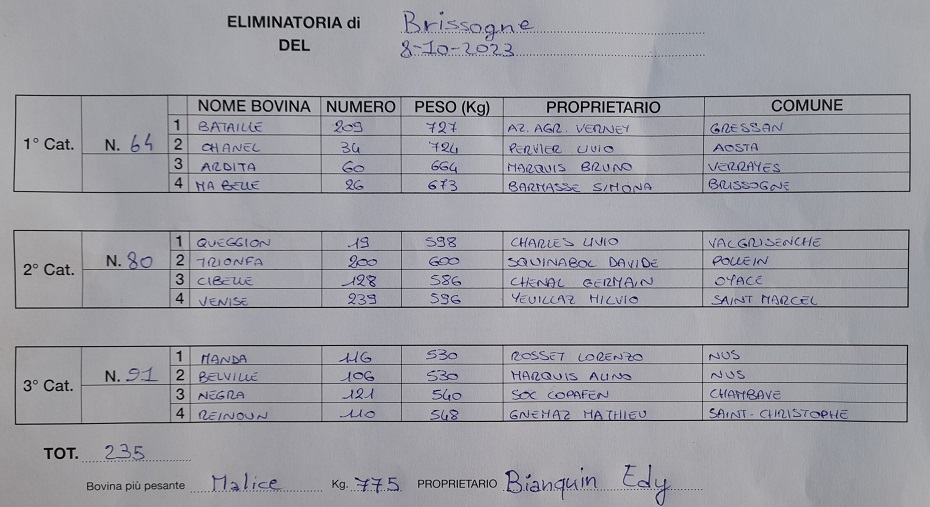 ELIMINATORIA di Brissogne
DEL 8-10-2023
NOME BOVINA NUMERO PESO (Kg) PROPRIETARIO COMUNE
1° Cat. N. 64
1 BATAILLE 209 727 AZ. AGR. VERNEY GRESSAN
2 CHANEL 34 724 PERVIER LIVIO AOSTA
3 ARDITA 60 664 MARQUIS BRUNO VERRAYES
4 MA BELLE 26 673 BARMASSE SIMONA BRISSOGNE
2° Cat. N. 80
1 QUEGGION 19 598 CHARLES LIVIO VALGRISENCHE
2 TRIONFA 200 600 SQUINABOL DAVIDE POLLEIN
3 CIBELLE 128 586 CHENAL GERMAIN OYACE
4 VENISE 239 596 YEUILLAZ MILVIO SAINT MARCEL
3° Cat. N. 91
1 MANDA 116 530 ROSSET LORENZO NUS
2 BELVILLE 106 530 MARQUIS ALINO NUS
3 NEGRA 121 540 SOC COPAFEN CHAMBAVE
4 REINOUN 110 548 GNEMAZ MATHIEU SAINT-CHRISTOPHE
TOT. 235
Bovina più pesante Malice Kg. 775 PROPRIETARIO Bianquin Edy